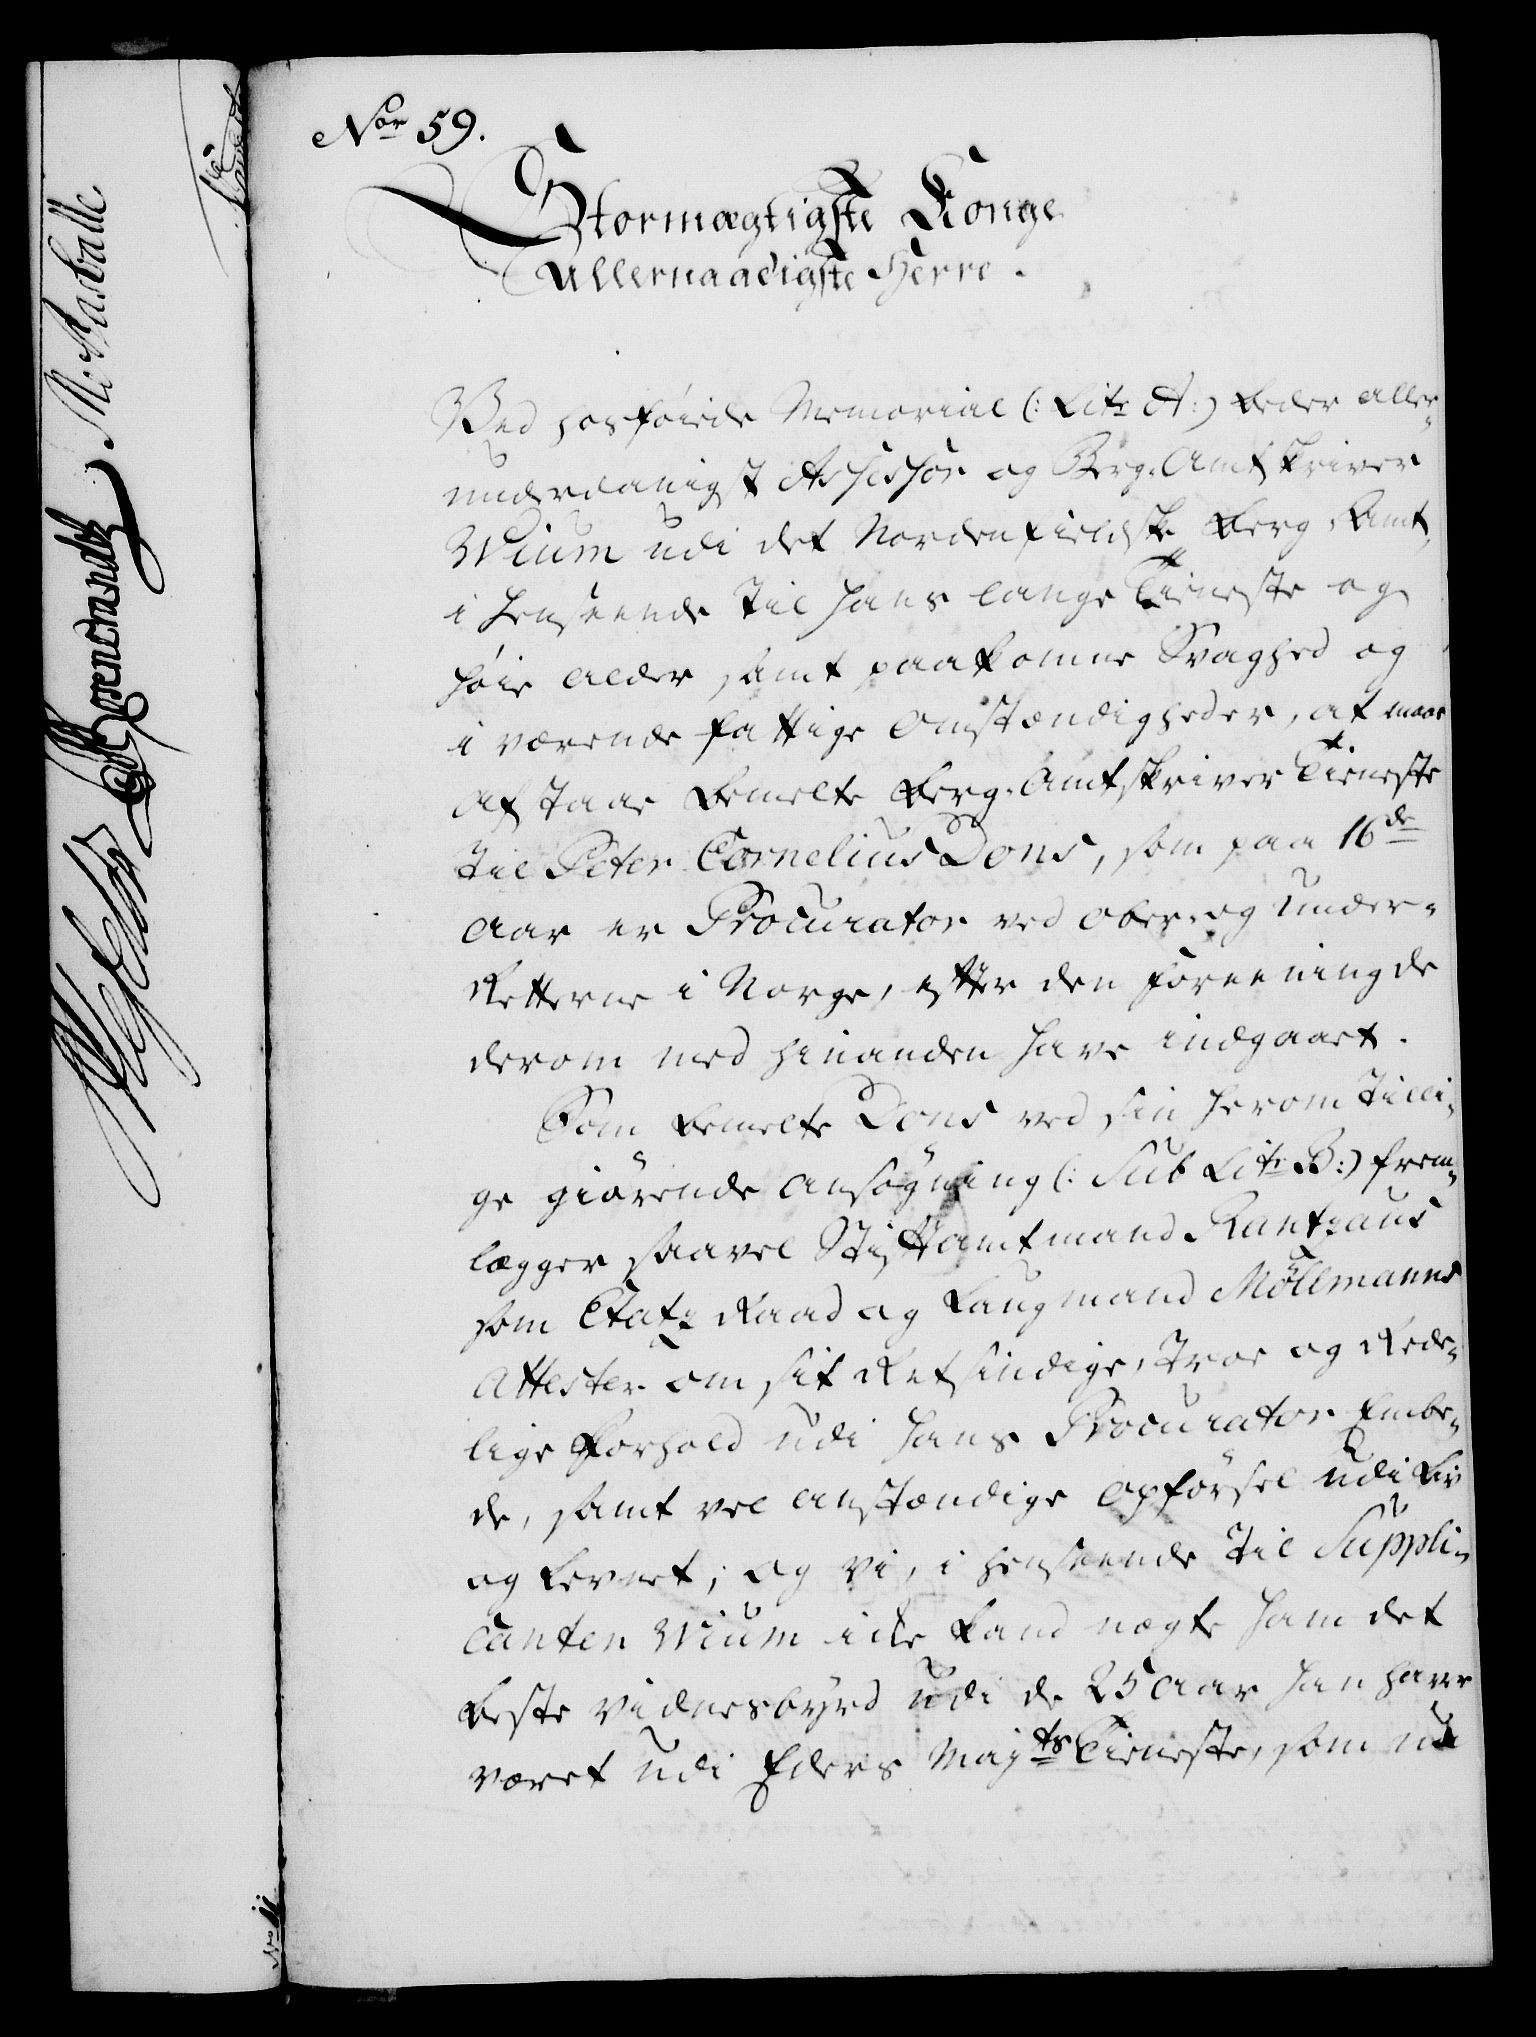 Nor 59.
Stormægtigste Konge
Allernaadigste Herre.
Ved hosføiede Memorial (: Litr A:) beder aller-
underdanigst Assessor og Berg-Amtskriver
Wium udi det Nordenfieldske Berg-Amt,
i henseende til hans lange Tieneste og
høie Alder samt paakomne Svaghed og
i værende fattige Omstændigheder, at maae
afstaae bemelte Berg-Amtskriver Tieneste
til Peter Cornelius Dons, som paa 16de
Aar er Procurator ved Ober- og Under-
Retterne i Norge, efter den Foreening de
derom med hinanden have indgaaet.
Som bemelte Dons ved sin herom tilli-
ge giørende Ansøgning (: Sub Litr B:) frem-
lægger saavel Stiftamtmand Rantzaus
som Etatz Raad og Laugmand Möllmanns
Attester om sit Retsindige, troe og Rede-
lige Forhold udi hans Procurator Embe-
de, samt vel anstændige Opførsel udi Liv
og Levnet; og vi, i henseende til Suppli-
canten Wium icke kand nægte ham det
beste Vidnesbyrd udi de 25 Aar han have
været udi Eders Majts Tieneste, som nu